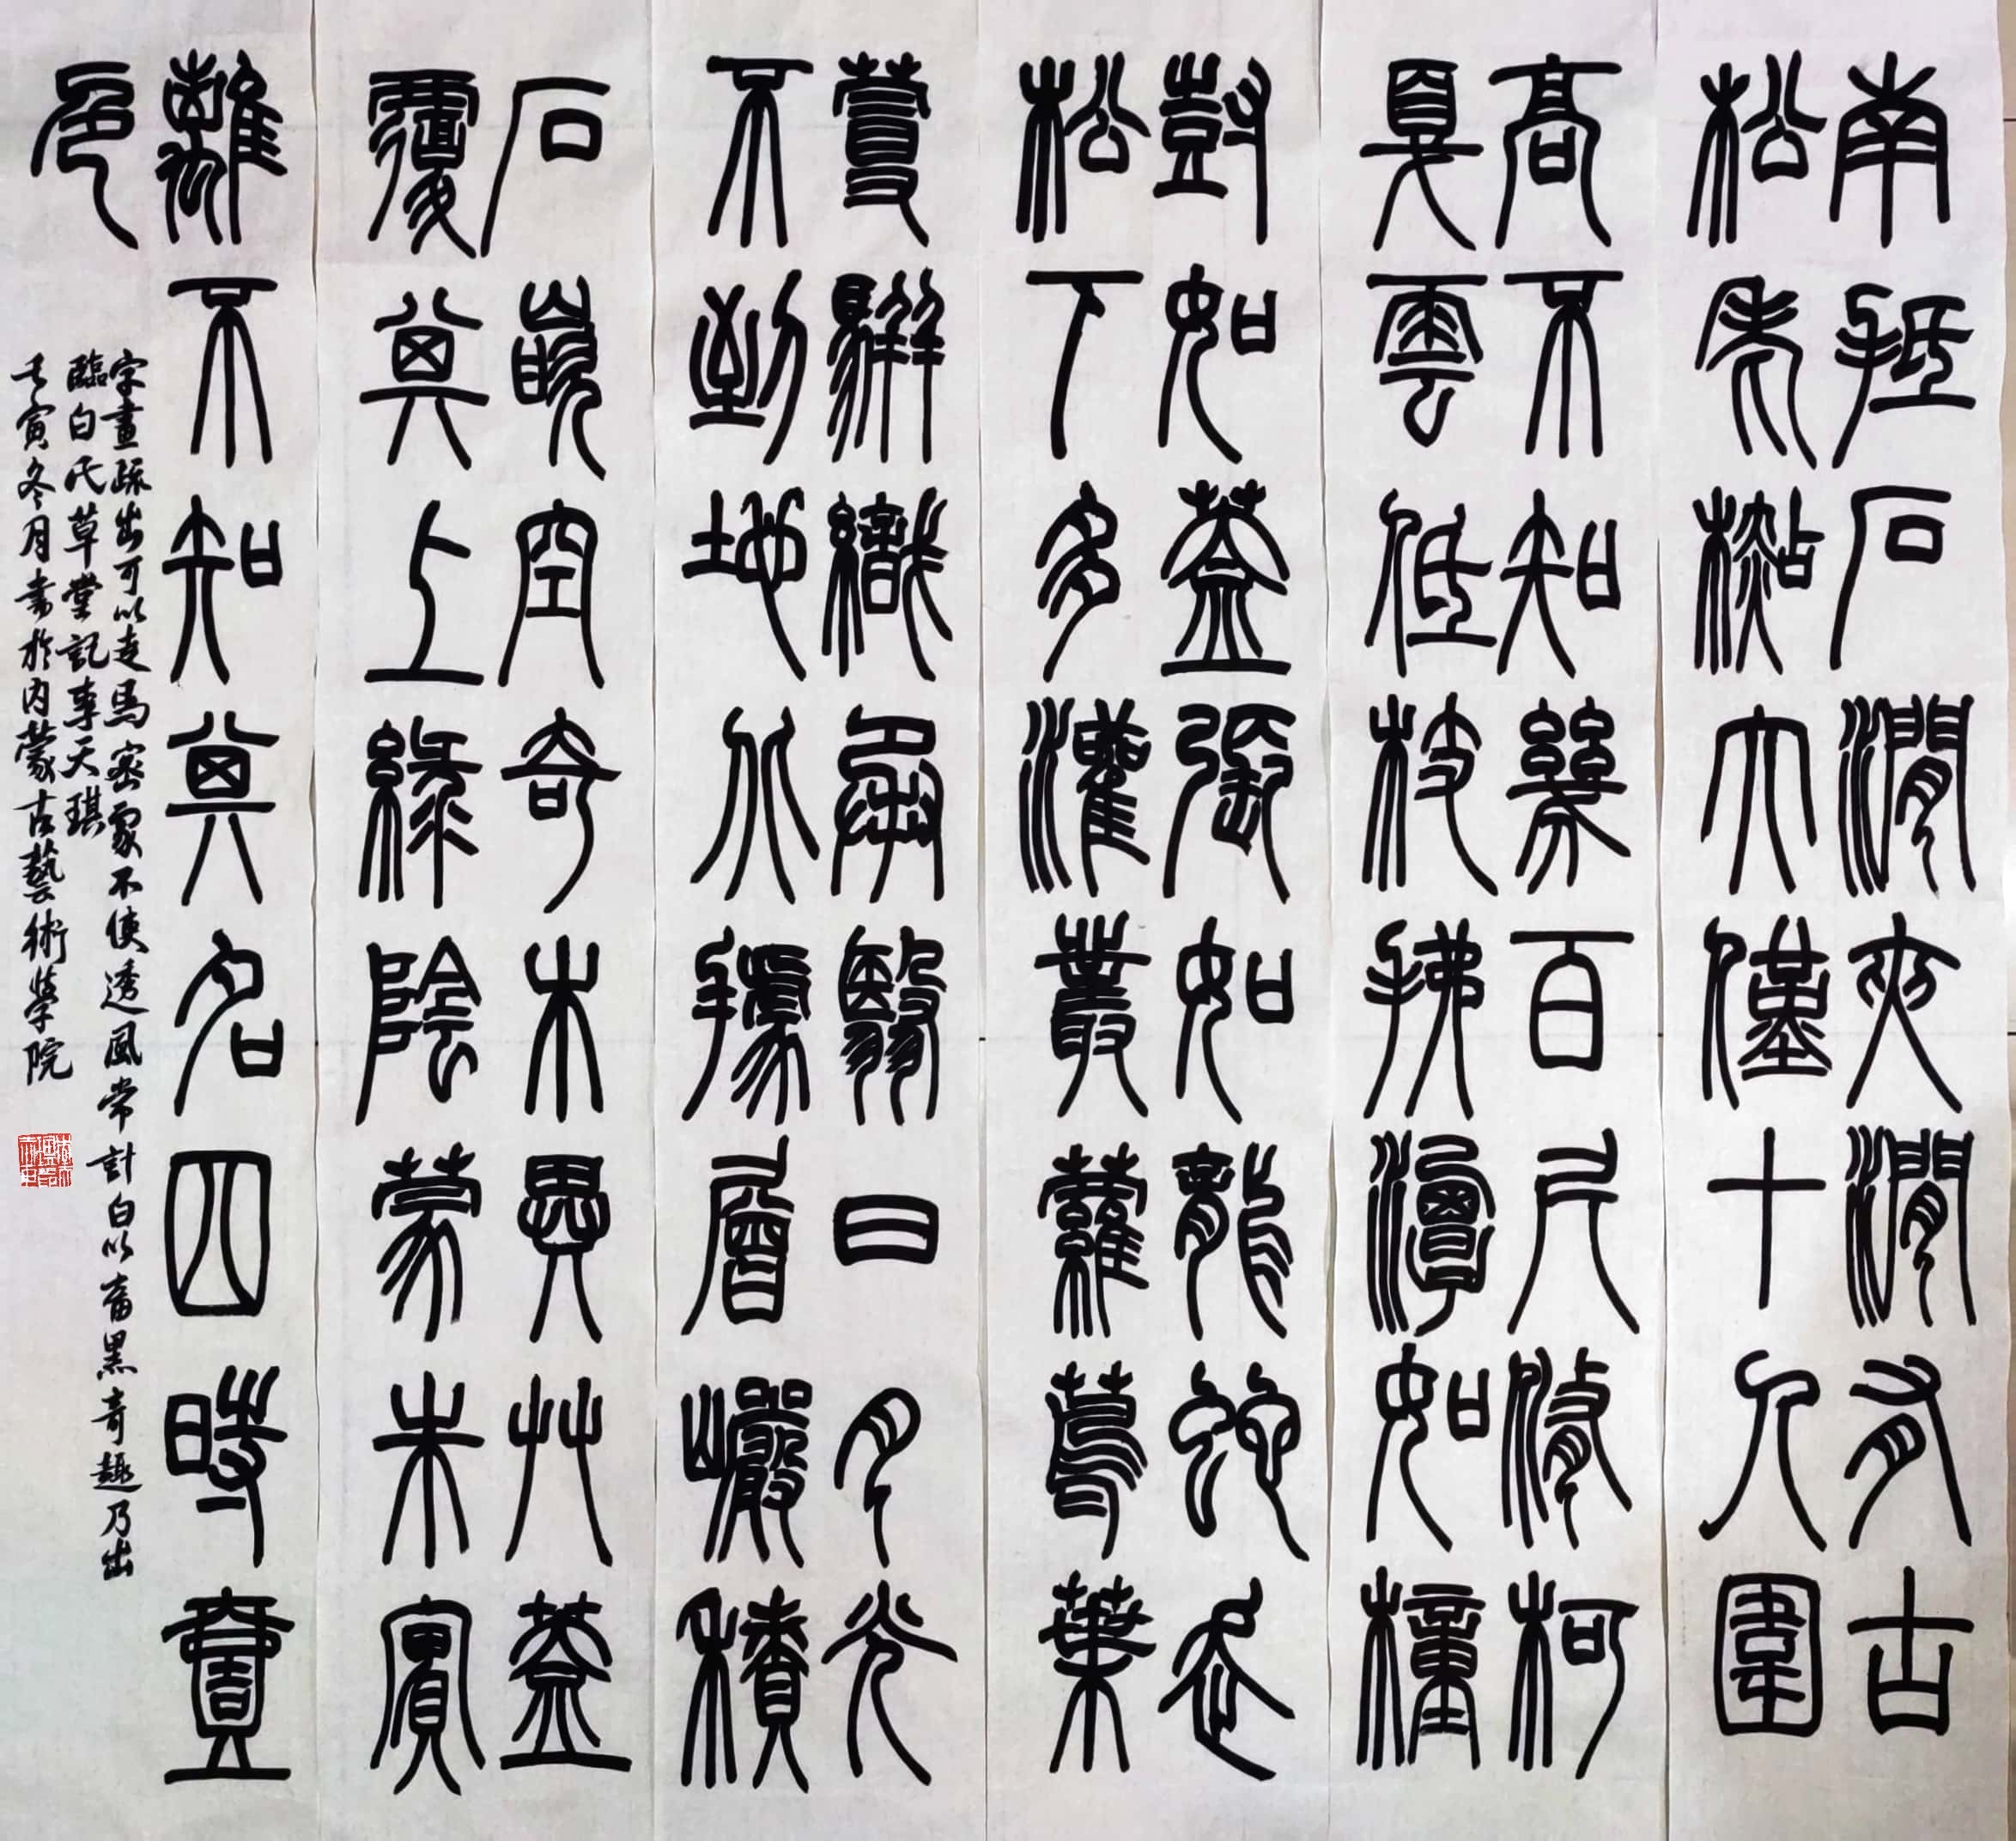 南抵石澗夾澗有古
松老檆大僅十人圍
高不知幾百尺脩柯
戛雲低枝拂潭如幢
尌如蓋張如龍蛇走
松下多灌叢蘿蔦葉
蔓駢織承翳日月光
不到地北據層巖積
石嵌空奇木異艸蓋
覆其上綠陰蒙朱實
離不知其名四時壹
色
字畫疏出可以走馬密處不使透風常計白以當黑奇趣乃出
臨白氏草堂記李天琪
壬寅冬月書於內蒙古藝術學院